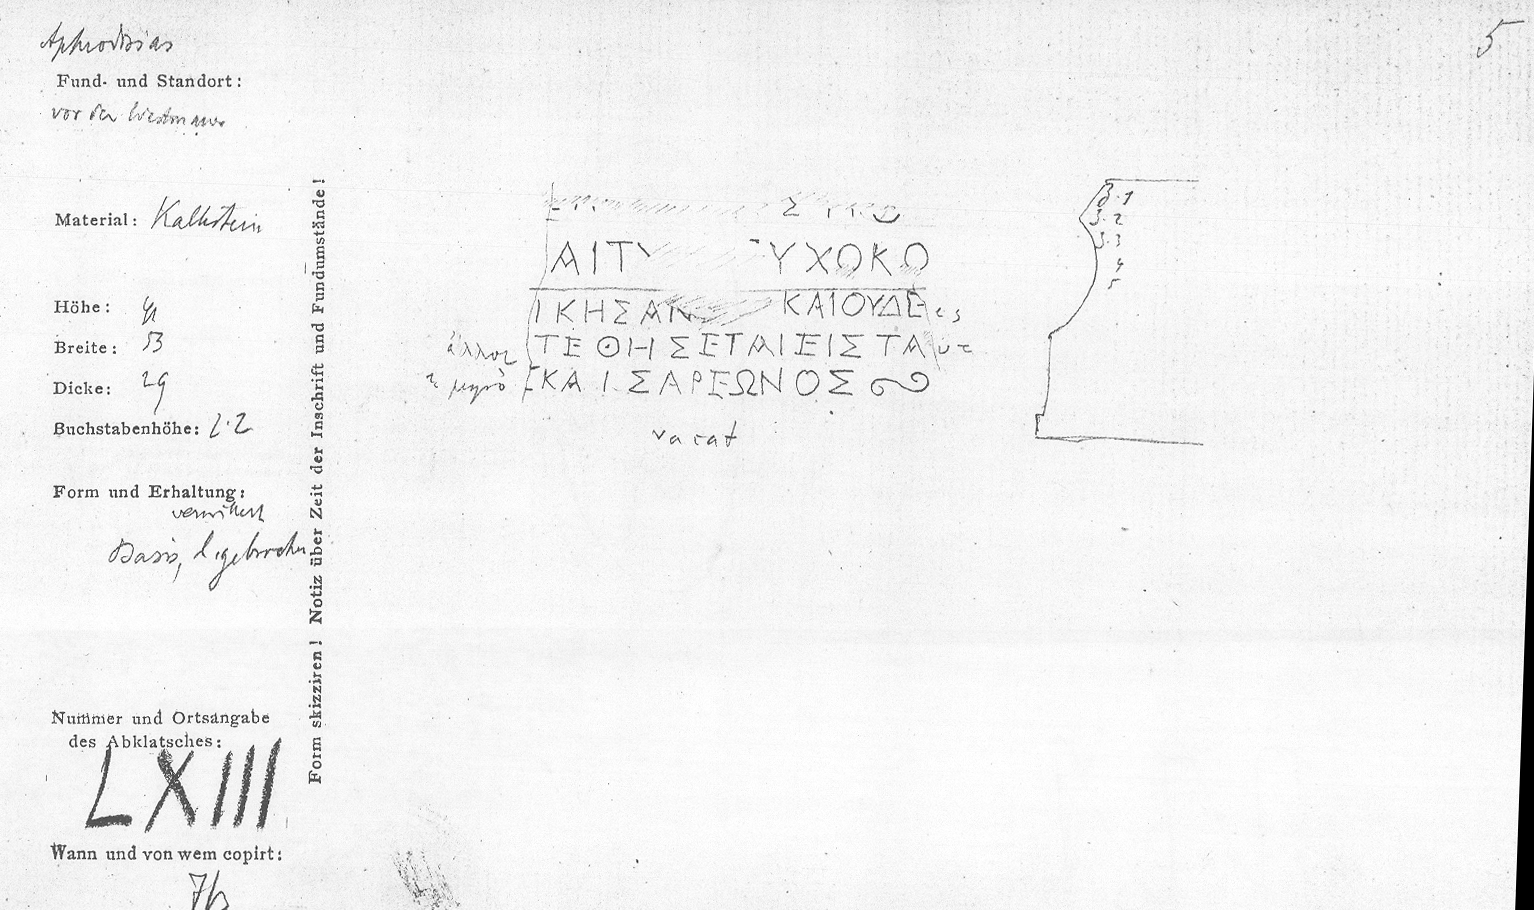 Aphrodisias
5
Fund- und Standort:
vor der Westmauer
Material: Kalkstein
Höhe:
Breite: 53
Dicke: 29
Buchstabenhöhe: 2.2
Form und Erhaltung:
verwittert
Basis, l. gebrochen
Nummer und Ortsangabe
des Abklatsches:
LXIII
Wann und von wem copirt:
Form skizziren! Notiz über Zeit der Inschrift und Fundumstände!
Σ
ΑΙΤΥ ΥΧΩΚΩ
ΙΚΗΣΑΝ ΚΑΙΟΥΔΕ ες
ἄλλος ΤΕΘΗΣΕΤΑΙΕΙΣΤΑ υτ
ΚΑΙΣΑΡΕΩΝΟΣ
vacat
3.1
3.2
3.3
4
5